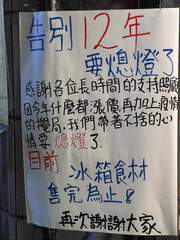 告別12年
要熄燈了
感謝各位長時間的支持照顧
因今年什麼都漲價,再加上疫情
的攪局,我們帶著不捨的心
情要熄燈了.
目前
冰箱食材
售完為止!
再次謝謝大家